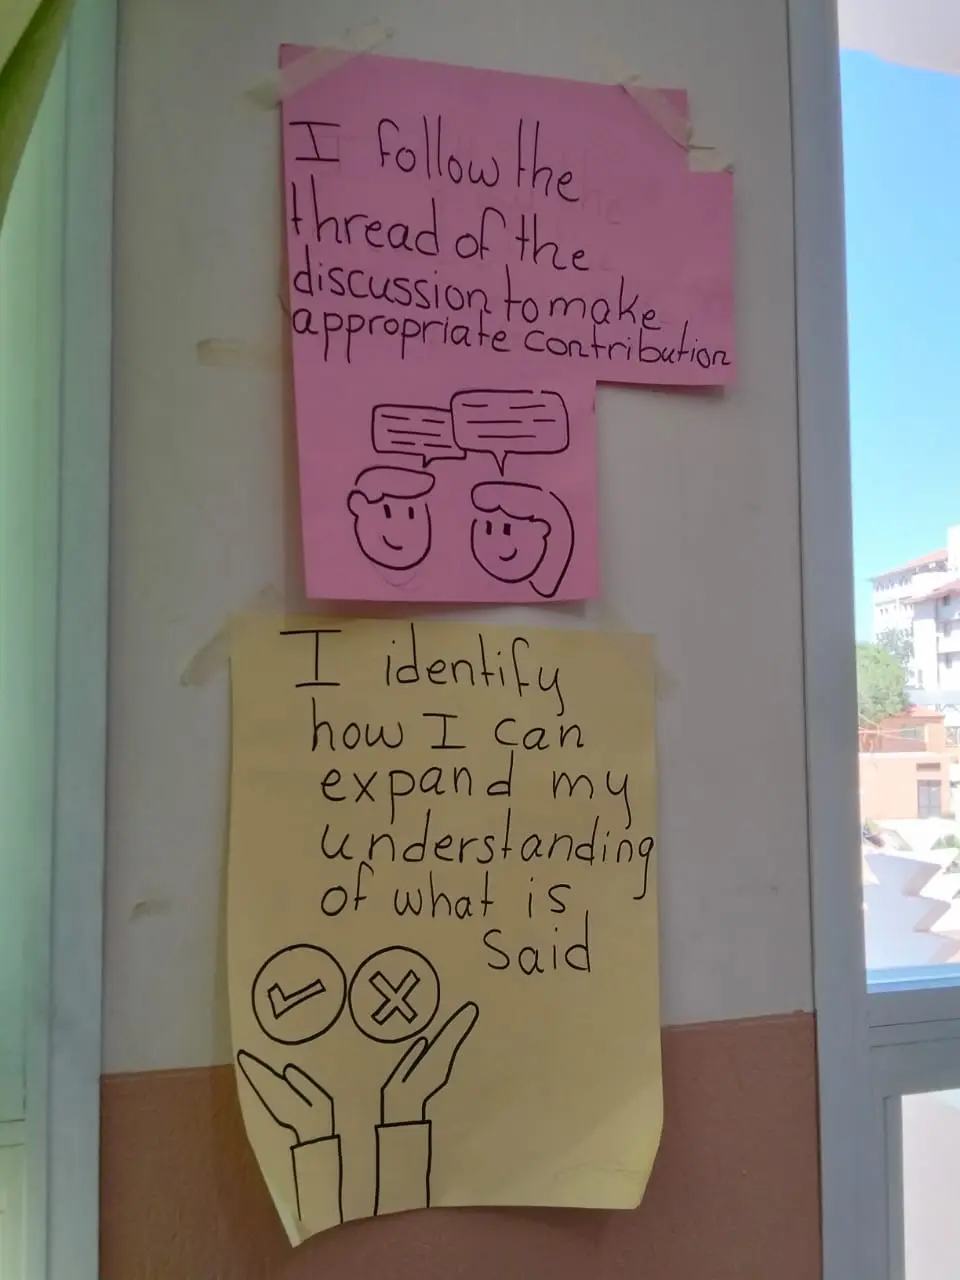 I follow the
thread of the
discussion to make
appropriate contribution
I identify
how I can
expand my
understanding
of what is
said